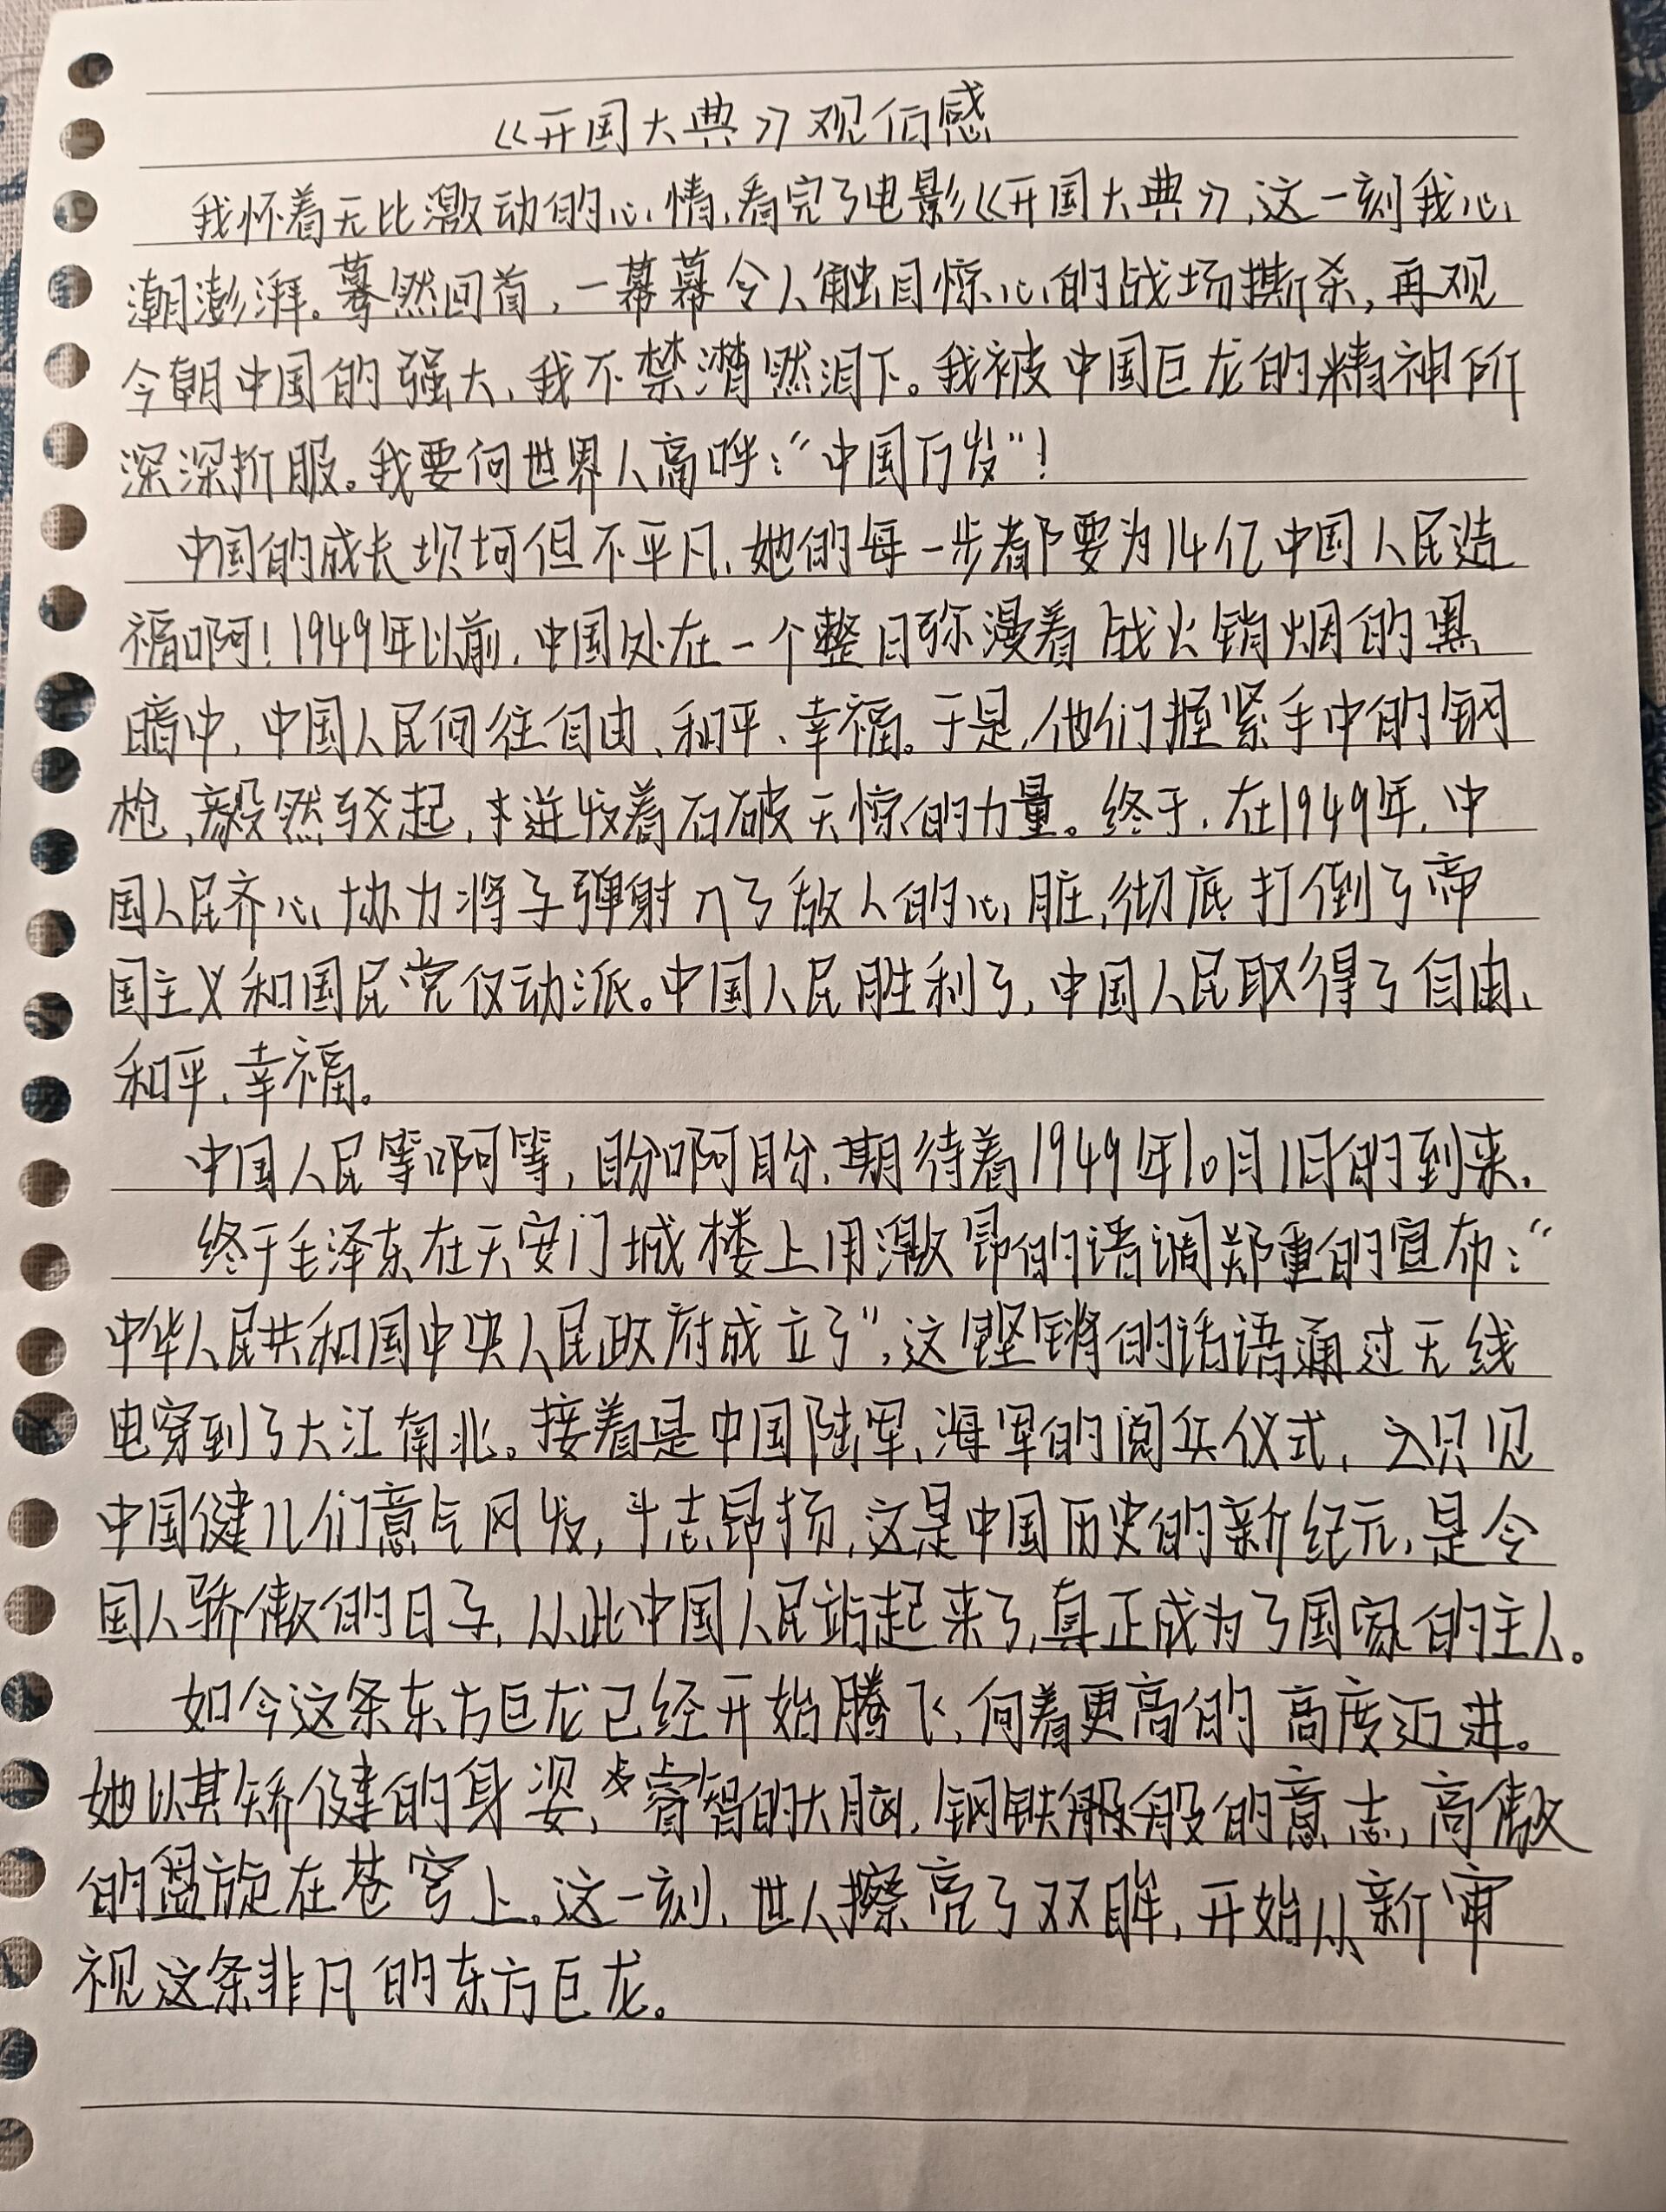 《开国大典》观后感
我怀着无比激动的心情,看完了电影《开国大典》,这一刻我心
潮澎湃。蓦然回首,一幕幕令人触目惊心的战场撕杀,再观
今朝中国的强大,我不禁潸然泪下。我被中国巨龙的精神所
深深折服。我要向世界人高呼:“中国万岁”!
中国的成长坝坷但不平凡,她的每一步都要为14亿中国人民造
福啊!1949年以前,中国处在一个整日弥漫着战火销烟的黑
暗中,中国人民向往自由、和平、幸福。于是,他们握紧手中的钢
枪,毅然驳起,迸发着石破天惊的力量。终于,在1949年,中
国人民齐心协力将子弹射入了敌人的心脏,彻底打倒了帝
国主义和国民党反动派。中国人民胜利了,中国人民取得了自由、
和平、幸福。
中国人民等啊等,盼啊盼,期待着1949年10月1日的到来.
终于毛泽东在天安门城楼上用激昂的语调郑重的宣布:“
中华人民共和国中央人民政府成立了”,这铿锵的话语通过无线
电穿到了大江南北。接着是中国陆军、海军的阅兵仪式,只见
中国健儿们意气风发,斗志昂扬,这是中国历史的新纪元,是令
国人骄傲的日子,从此中国人民站起来了,真正成为了国家的主人。
如今这条东方巨龙已经开始腾飞,向着更高的高度迈进。
她以其矫健的身姿,睿智的大脑,钢铁般般的意志,高傲
的盘旋在苍穹上。这一刻,世人擦亮了双眸,开始从新审
视这条非凡的东方巨龙。